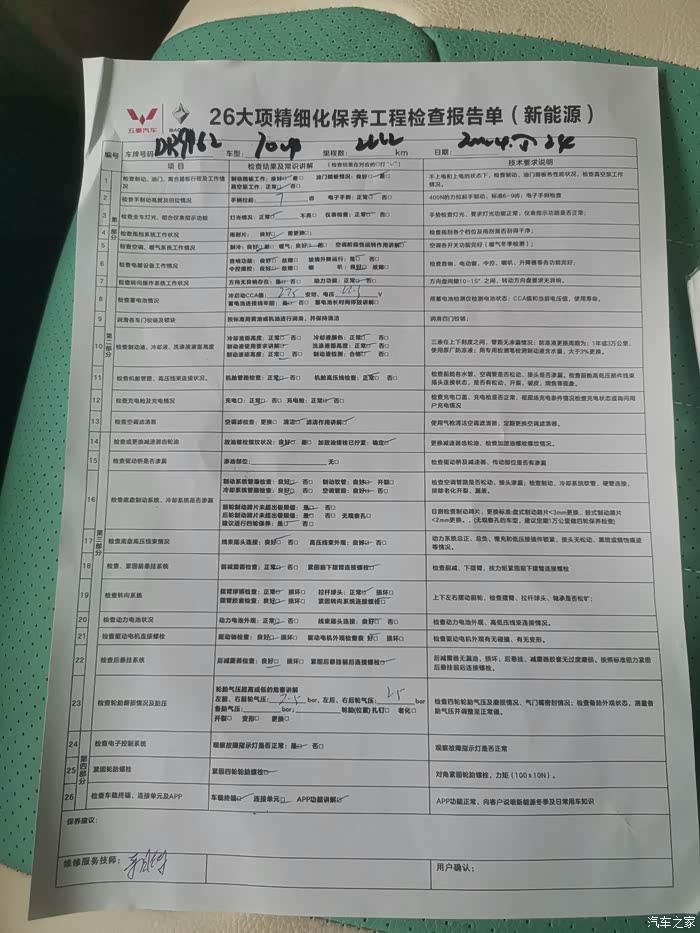 五菱汽车
26大项精细化保养工程检查报告单（新能源）
车牌号码 车型： 里程数： km 日期：
编号 项目 检查结果及常识讲解 技术要求说明
1 检查制动、油门、离合踏板行程及工作情况 制动踏板工作：良好 油门踏板情况：良好 真空泵工作：正常 不上电和上电的状态下，检查制动、油门踏板各性能状况，检查真空泵工作情况。
2 检查手制动高度及回位情况 手柄拉起：7 齿 电子手刹：正常□ 否□ 400N的力拉起手制动，标准6-9齿；电子手刹检查
3 检查全车灯光、组合仪表指示功能 灯光情况：正常 不亮□ 仪表检查：正常 否□ 手势检查灯光，要求灯光功能正常；仪表指示功能是否正常；
4 检查雨刮系统工作状况 雨刮片：良好 需更换□ 检查雨刮各个档位及雨刮是否刮得干净；
5 检查空调、暖气系统工作情况 制冷：良好 暖气：良好 空调前段性能转作用讲解 空调各开关功能完好（暖气冬季检测）；
6 检查电器设备工作情况 音响功能：良好 故障□ 玻璃升降运行：是 否□ 中控操控：良好 故障□ 喇叭：良好 故障□ 检查音响、电动窗、中控、喇叭、升降器等各功能完好；
7 检查转向操作系统工作状况 方向无异响存在：是 否□ 助力功能：正常 否□ 方向盘间隙10-15°之间，转动方向盘要求无异响。
8 检查蓄电池情况 冷启动CCA值：275 安培、电压 V 蓄电池连接线牢固：是 否□ 蓄电池长时间停放讲解 用蓄电池检测仪检测电池状态：CCA值和当前电压值，使用寿命。
9 润滑各车门铰链及锁块 按标准用黄油或机油进行润滑，并保持清洁 润滑四门铰链；
第二部分
10 检查制动油、冷却液、洗涤液液面高度 冷却液液面高度：正常 否□ 冷却液颜色：正常 否□ 制动液使用要求讲解 洗涤液液面高度：正常 否□ 制动液液面高度：正常 否□ 制动液检测：合格 否□ 三液在上下刻度之间，管路无渗漏情况；防冻液更换周期为：1年或3万公里，使用原厂防冻液；用专用检测笔检测制动液含水量，大于3%更换。
11 检查机舱管路、高压线束连接状况。 机舱管路检查：正常 否□ 机舱高压线检查：正常 否□ 检查前舱各水管、空调管是否松动，接头是否渗漏。检查前舱高低压部件线束插头连接状态，是否有松动、开裂、破皮、烧焦等现象。
12 检查充电枪及充电情况 充电口：正常 否□ 充电枪：正常 否□ 检查充电口盖、充电枪是否正常，根据插充电条件情况检查充电状态或询问用户充电情况
13 检查空调滤清器 空调滤检查：更换□ 清洁 滤清作用讲解 使用气枪清洁空调滤清器，定期更换空调滤清器。
14 检查或更换减速器齿轮油 放油螺栓螺纹状况：良好 加放油螺栓已拧紧：确定 更换减速器齿轮油，检查加放油螺纹螺纹情况。
15 检查驱动桥是否渗漏 渗油部位： 无□ 检查驱动桥及减速器、传动部位是否有渗漏
16 检查底盘制动系统、冷却系统是否渗漏 制动系统管漏检查：良好 否□ 制动软管：良好 开裂□ 冷却系统管漏检查：良好 否□ 空调管路：良好 否□ 检查空调管路是否松动，接头渗漏；检查制动、冷却系统软管、硬管连接，排除老化开裂、漏液。
前轮制动蹄片未超出极限值：是 否□ 后轮制动蹄片未超出极限值：是 否□ 无观察孔□ 建议进行四轮保养：是 否□ 目测检查制动蹄片，更换标准：盘式制动蹄片<3mm更换，鼓式制动蹄片<2mm更换。（无观察孔的车型，建议定期1万公里做四轮保养检查）
第三部分
17 检查底盘高压线束情况 线束插头连接：良好 否□ 高压线束外观：良好 否□ 动力系统总正、总负、慢充和低压接插件锁紧，接头无松动、黑斑或锈蚀痕迹等情况。
18 检查、紧固前悬挂系统 前减震器检查：正常 否□ 紧固前下摆臂连接螺栓 检查前减、下摆臂，按力矩紧固前下摆臂连接螺栓
19 检查转向系统 摆臂球销检查：正常 损坏□ 拉杆球头：正常 损坏□ 摆臂胶套检查：良好 损坏□ 紧固转向系统连接螺栓 上下左右摆动前轮，检查摆臂、拉杆球头、轴承是否松旷；
20 检查动力电池状况 动力电池外观：正常 否□ 线束插头连接：良好 否□ 检查动力电池外观、高低压线束连接情况。
21 检查驱动电机连接螺栓 驱动轴检查：良好 损坏□ 驱动电机外观检查良好 损坏□ 检查驱动电机外观有无碰撞、有无变形。
22 检查后悬挂系统 后减震器检查：良好 损坏□ 紧固后悬挂前后连接螺栓 后减震器无漏油，损坏，后悬挂、减震器胶套无过度磨损。按照标准扭力紧固后悬挂前后连接螺栓。
23 检查轮胎磨损情况及胎压 轮胎气压超高或低的危害讲解 左前、右前轮气压：2.5 bar，左后、右后轮气压：2.5 备胎气压： bar； 轮胎(位置)扎钉□ 老化□ 开裂□ 变形□ 更换□ 检查四轮轮胎气压及磨损情况、气门嘴密封情况；检查备胎外观状态，测量备胎气压并调整至正常值。
第四部分
24 检查电子控制系统 观察故障指示灯是否正常：是 否□ 观察故障指示灯是否正常
25 紧固轮胎螺栓 紧固四轮轮胎螺栓 对角紧固轮胎螺栓，力矩（100±10N）。
26 检查车载终端、连接单元及APP 车载终端 连接单元 APP功能讲解 APP功能正常，向客户说明新能源冬季及日常用车知识
保养建议：
维修服务技师： 用户确认：
汽车之家